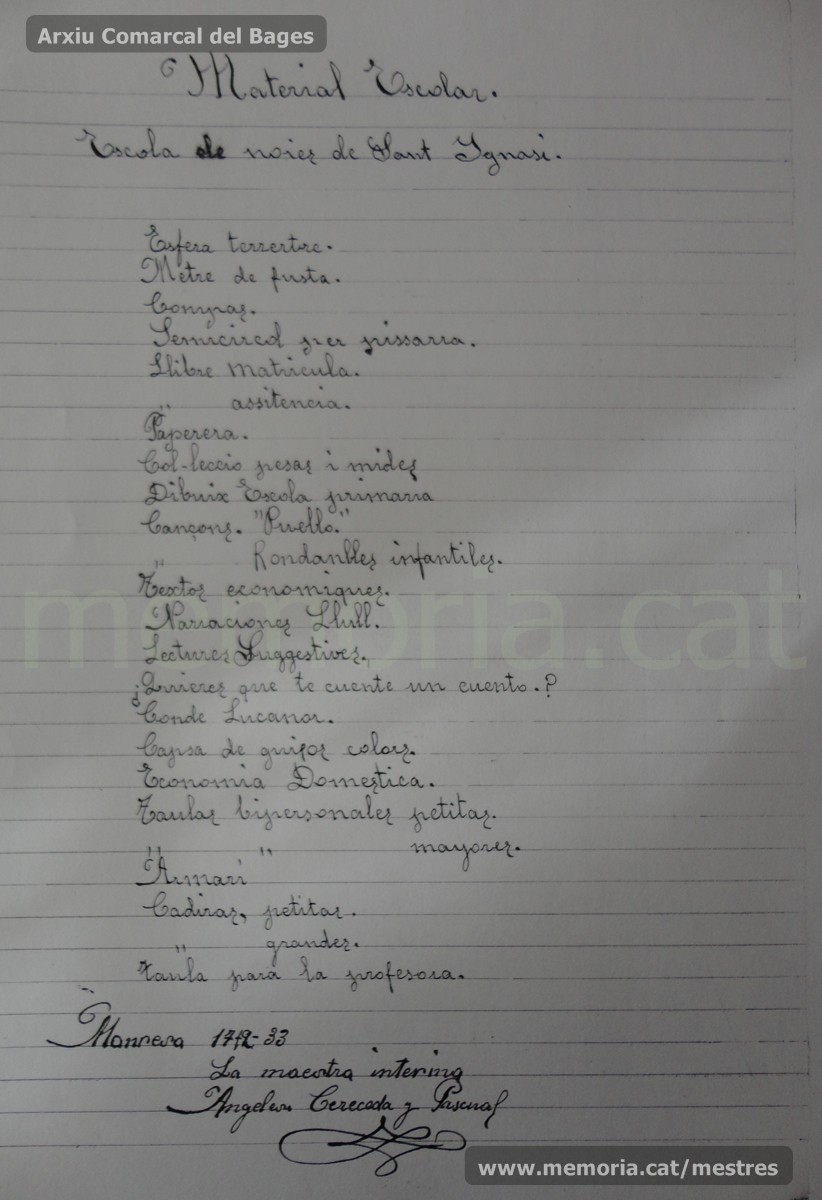 Arxiu Comarcal del Bages
Material Escolar.
Escola de noies de Sant Ignasi.
Esfera terrertre.
Metre de fusta.
Compas.
Semicircol per pissarra.
Llibre matricula.
" assitencia.
Paperera.
Col-leccio pesas i mides
Dibuix Escola primaria
Cançons. "Puello."
" Rondanlles infantiles.
Textos economiques.
Narraciones Llull.
Lectures Suggestives.
¿Quieres que te cuente un cuento.?
Conde Lucanor.
Capsa de guixos colors.
Economia Domestica.
Taulas bipersonales petitas.
" " mayores.
Armari
Cadiras, petitas.
" grandes.
Taula para la profesora.
Manresa
La maestra interina
Angeles Cereceda y Pascual
memoria.cat
www.memoria.cat/mestres